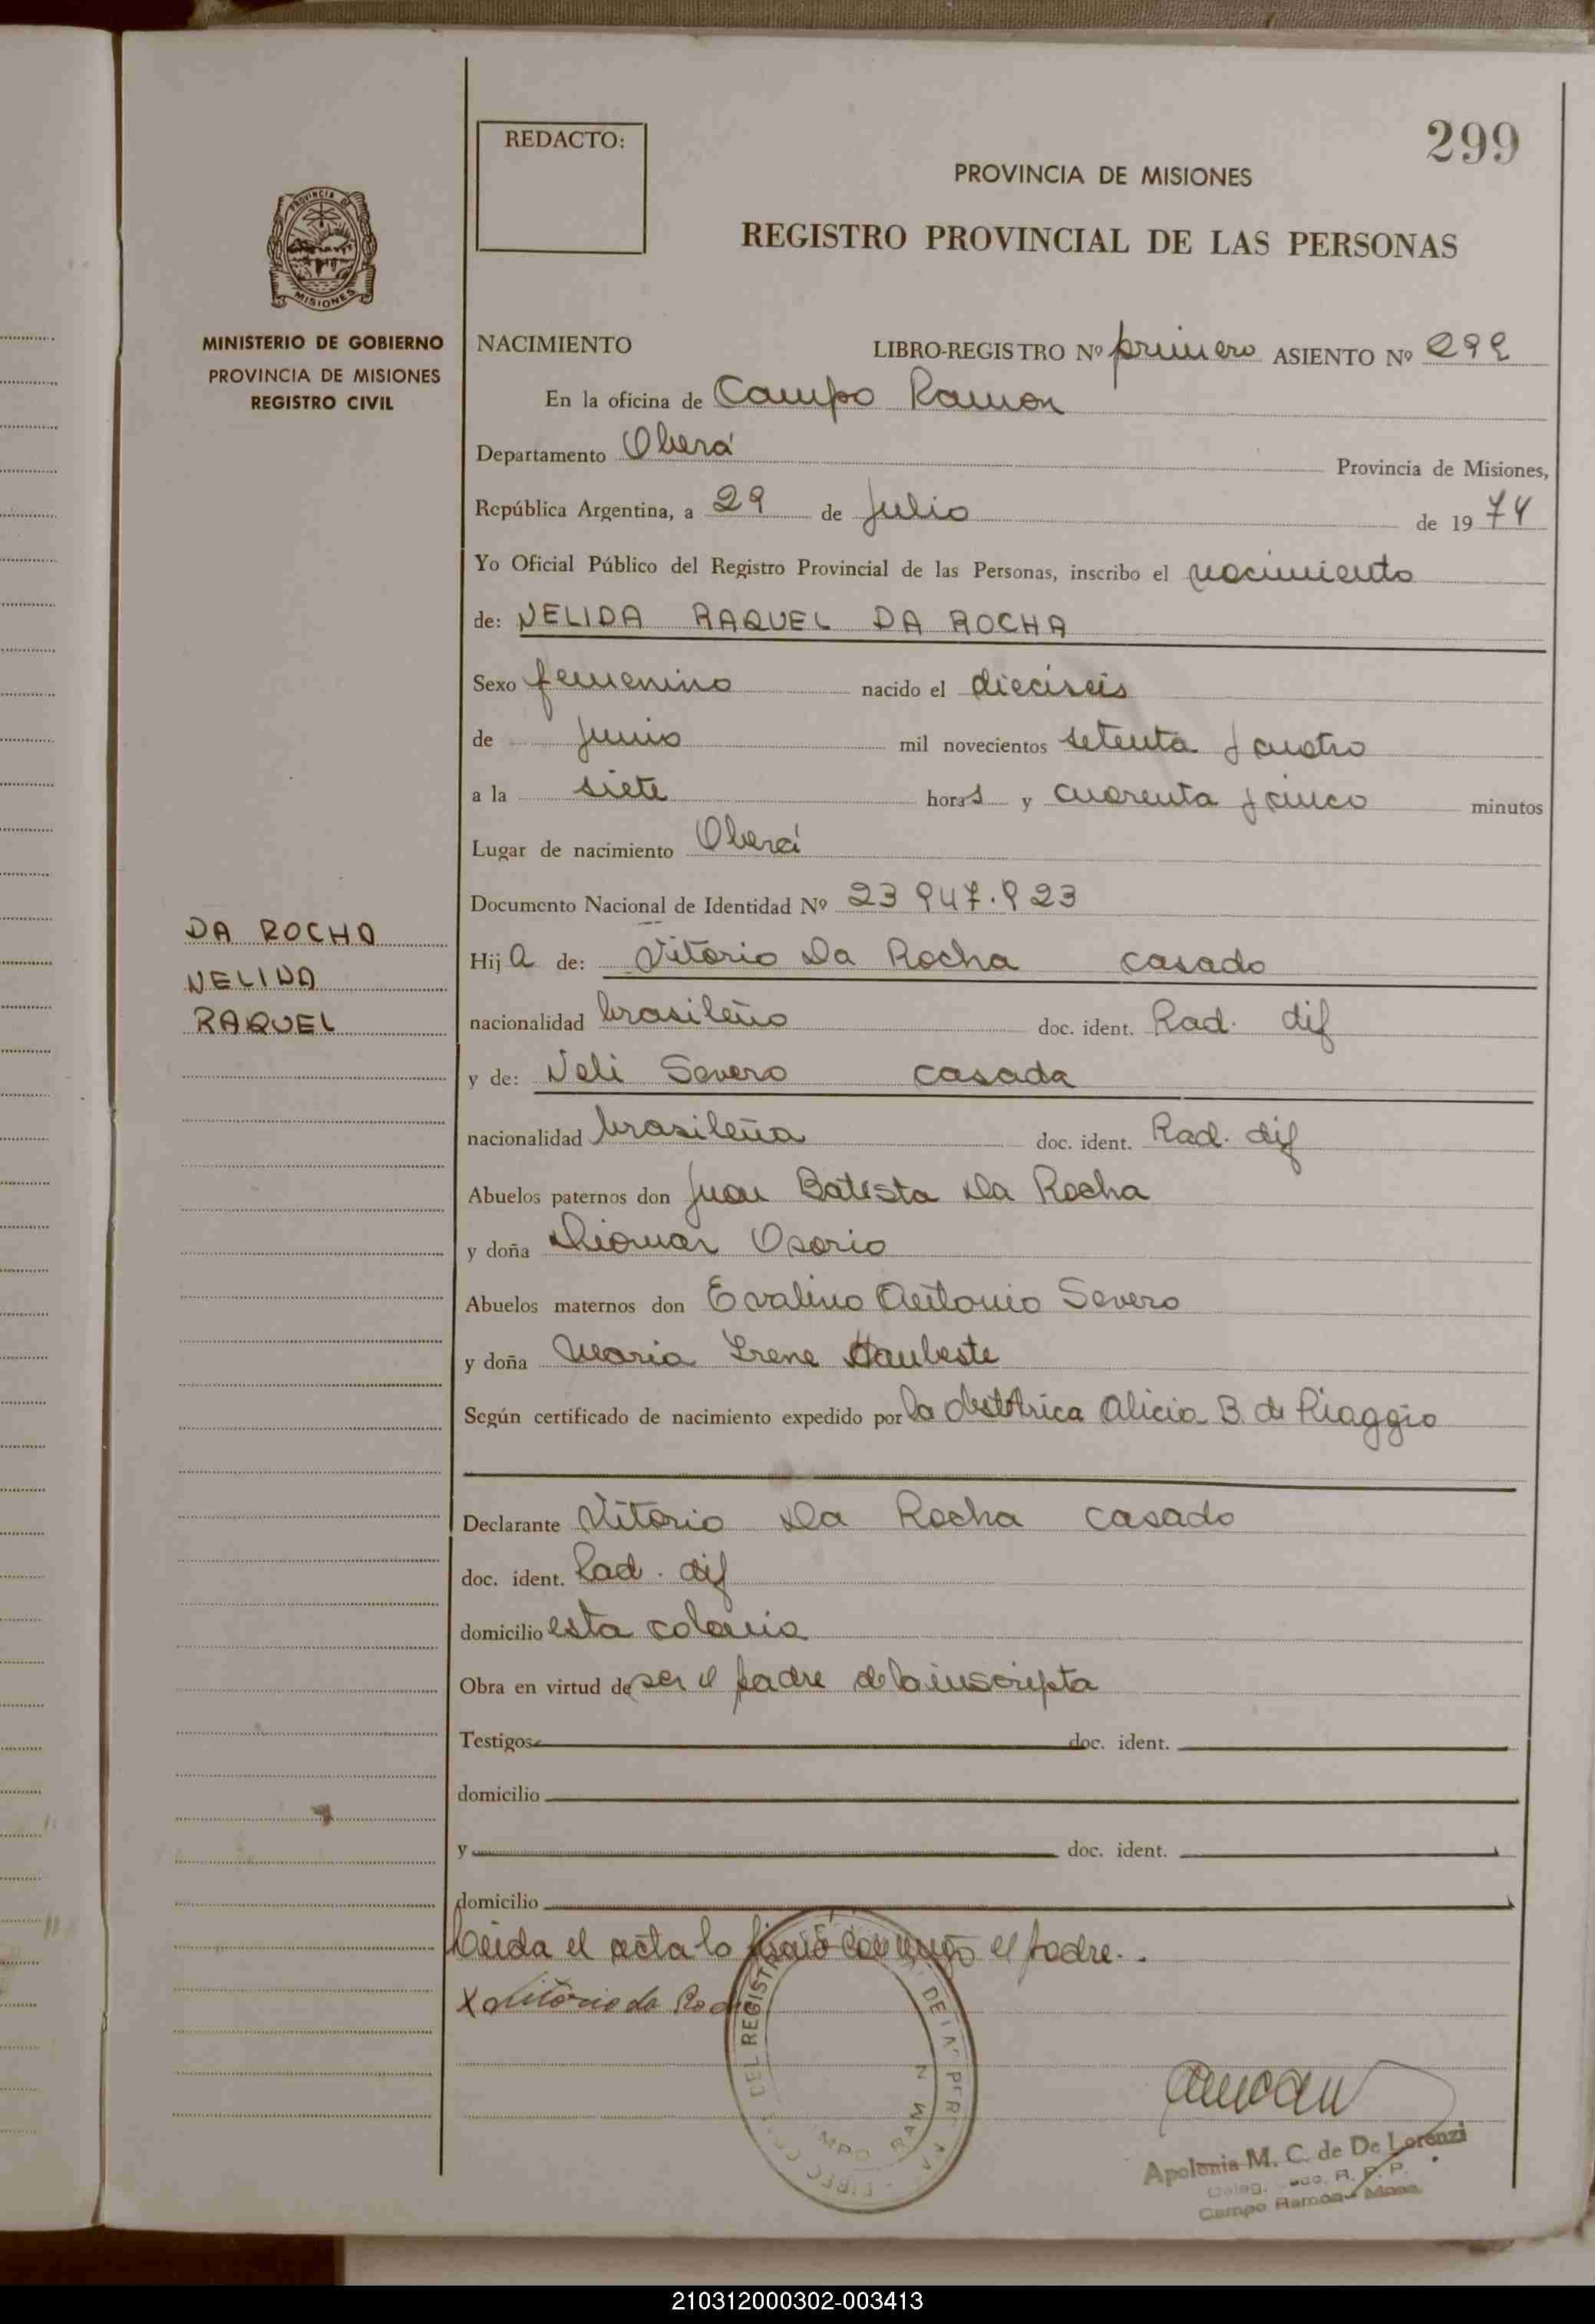 299
REDACTO:
PROVINCIA DE MISIONES
REGISTRO PROVINCIAL DE LAS PERSONAS
PROVINCIA DE
MISIONES
MINISTERIO DE GOBIERNO
PROVINCIA DE MISIONES
REGISTRO CIVIL
NACIMIENTO LIBRO-REGISTRO Nº primero ASIENTO Nº 299
En la oficina de Campo Ramon
Departamento Oberá Provincia de Misiones,
República Argentina, a 29 de Julio de 1974
Yo Oficial Público del Registro Provincial de las Personas, inscribo el nacimiento
de: NELIDA RAQUEL DA ROCHA
Sexo femenino nacido el dieciseis
de Junio mil novecientos setenta y cuatro
a la siete horas y cuarenta y cinco minutos
Lugar de nacimiento Oberá
Documento Nacional de Identidad Nº 23 947.923
DA ROCHA
NELIDA
RAQUEL
Hija de: Vitorio Da Rocha casado
nacionalidad brasileño doc. ident. Rad. dif
y de: Neli Severo casada
nacionalidad brasileña doc. ident. Rad. dif
Abuelos paternos don Juan Batista Da Rocha
y doña Diomar Osorio
Abuelos maternos don Evalino Antonio Severo
y doña Maria Irene
Según certificado de nacimiento expedido por la obstétrica Alicia B. de Piaggio
Declarante Vitorio Da Rocha casado
doc. ident. Rad. dif
domicilio esta colonia
Obra en virtud de ser el padre de la inscripta
Testigos doc. ident.
domicilio
y doc. ident.
domicilio
Leida el acta lo firmó conmigo el padre.
X Vitorio da Rocha
DEL REGISTR
Apolonia M. C. de De Lorenzi
R. P. P.
Campo Ramon - Mnes.
210312000302-003413